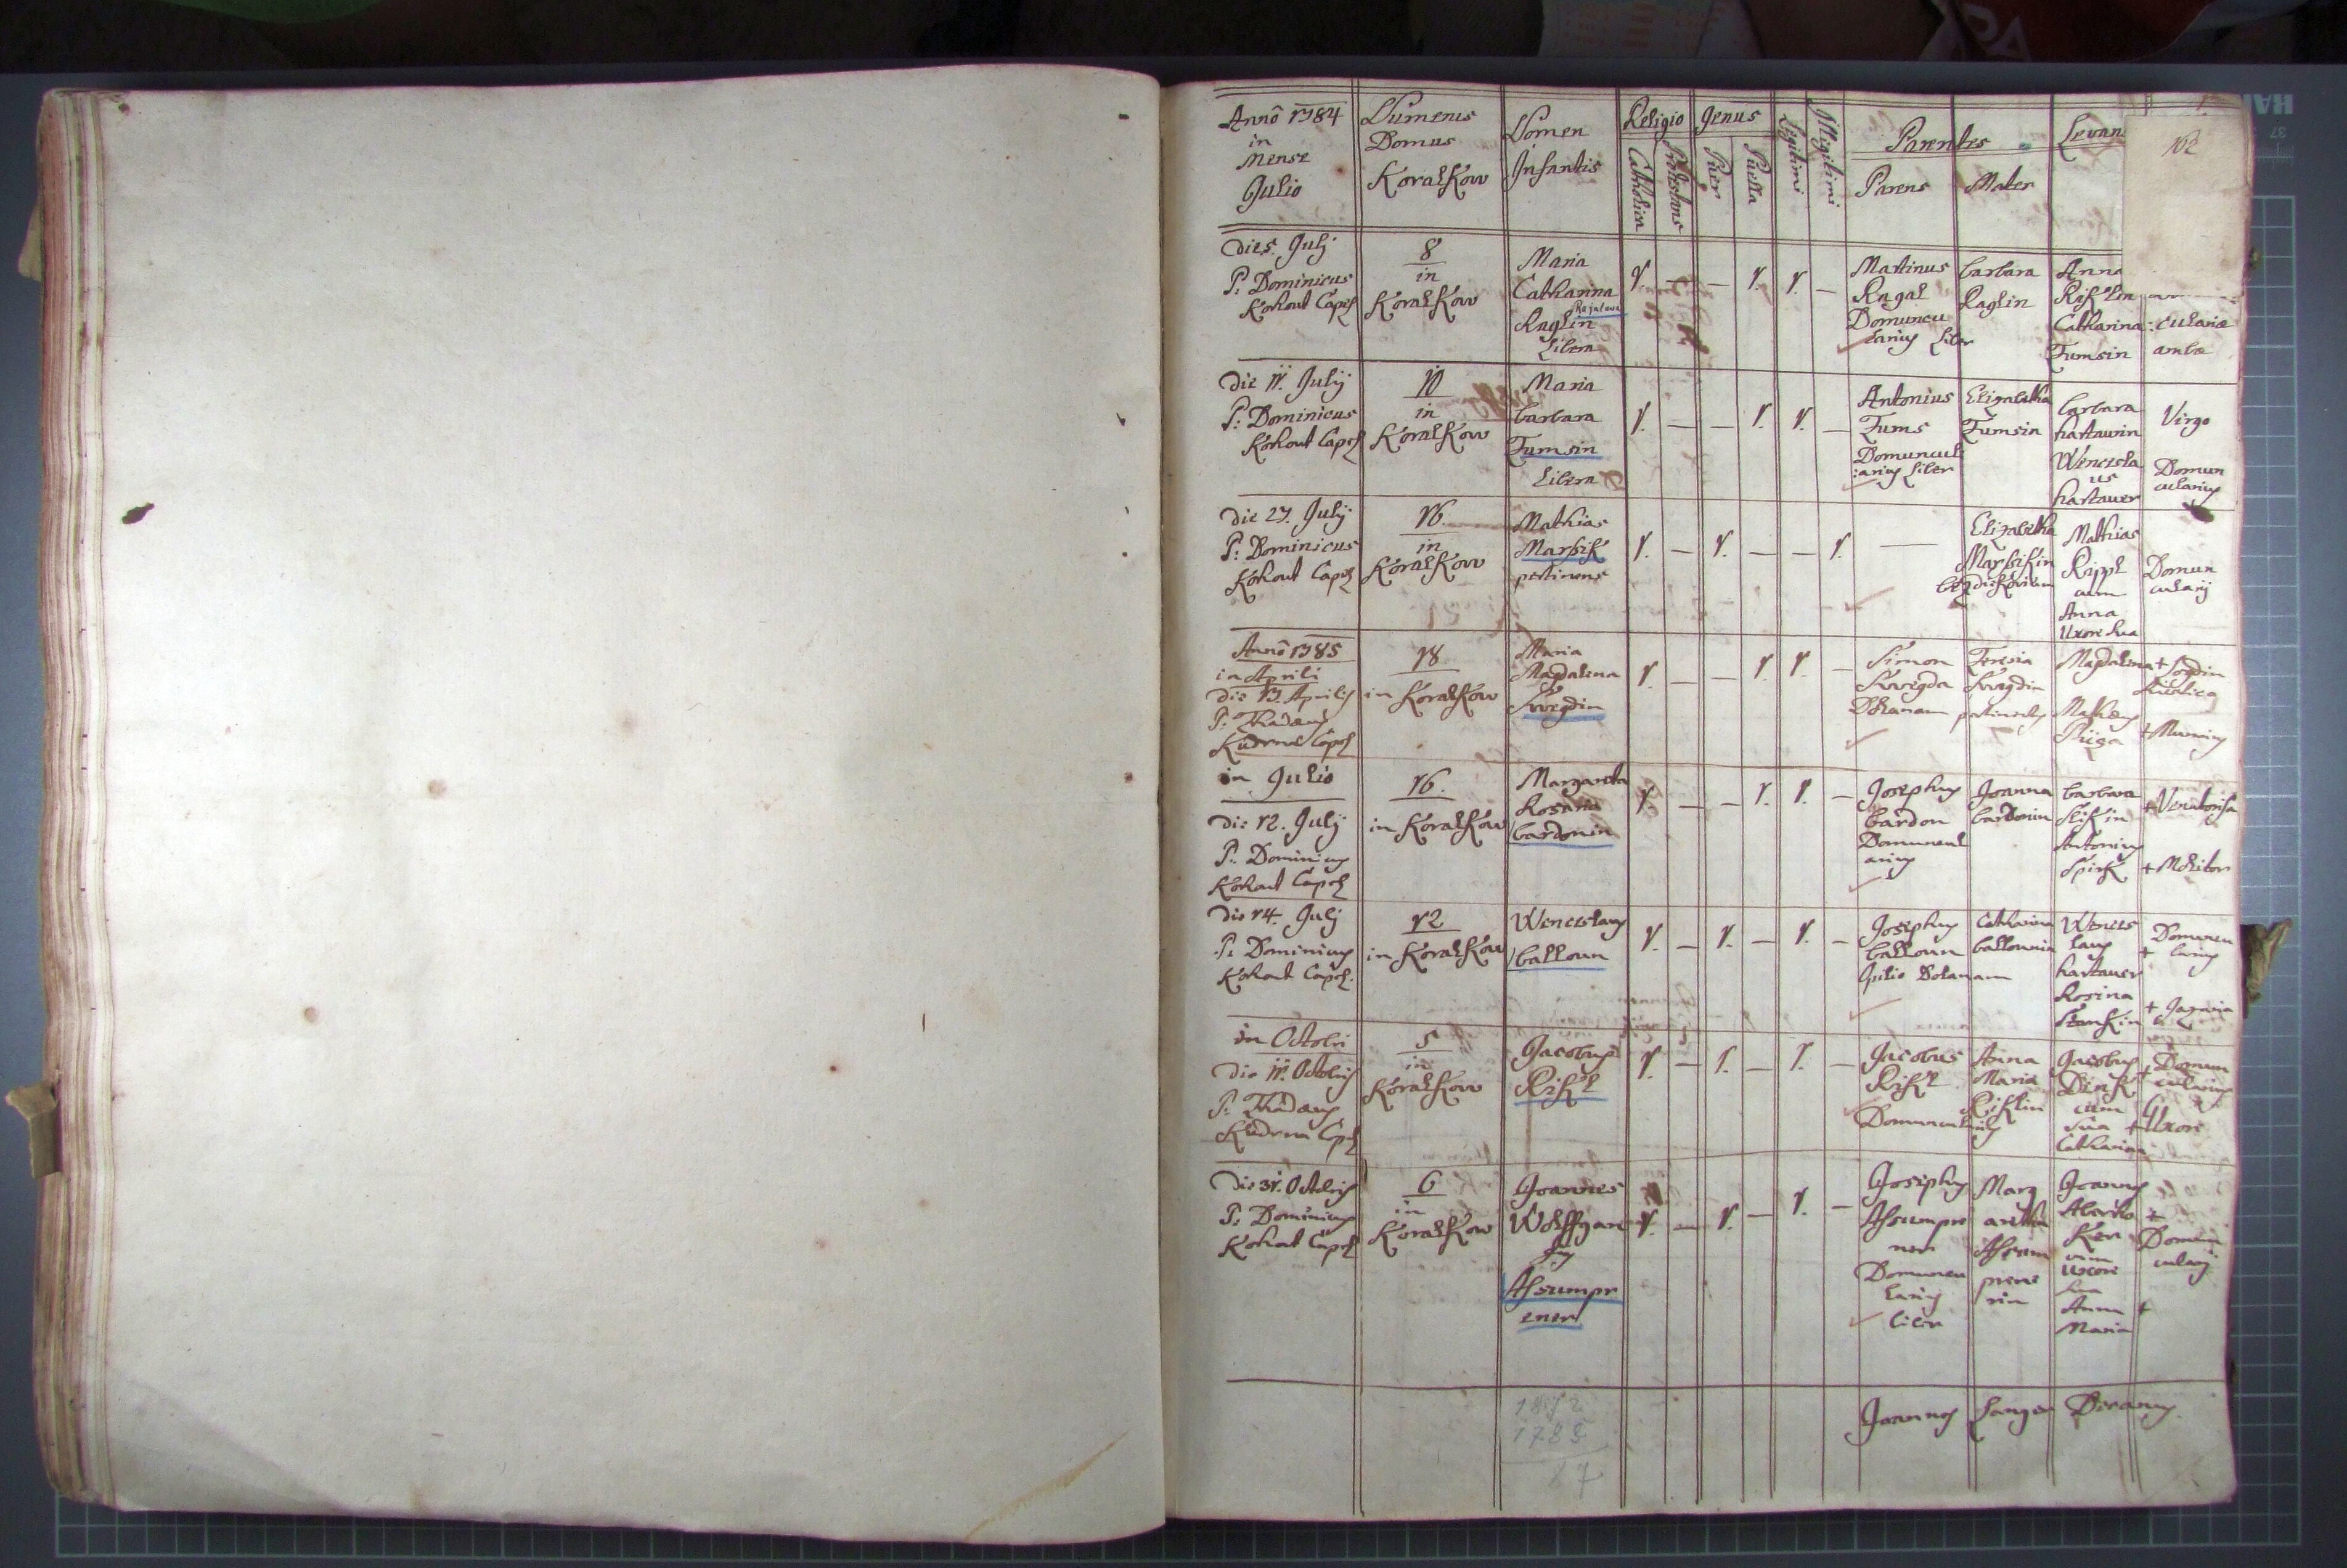 Annô 1784
in
Mense
Julio
Numerus
Domus
Koralkow
Nomen
Infantis
Religio
Catholica
Protestans
Genus
Puer
Puella
Legitimi
Illegitimi
Parentes
Parens
Mater
Levan
102
Die 5 Julij
P: Dominicus
Kohout Capel
8
in
Koralkow
Maria
Catharina
Raglin
Libera
1. — — 1. 1. —
Martinus
Ragal
Domuncu
larius Liber
barbara
Raglin
Anna
Catharina
Tumsin
:culariæ
ambæ
Die 11. Julij
P: Dominicus
Kohout Capel
10
in
Koralkow
Maria
barbara
Tumsin
Libera
1. — — 1. 1. —
Antonius
Tums
Domuncul
:arius Liber
Elizabetha
Tumsin
barbara
hartaurin
Wencesla
us
hartauer
Virgo
Domun
cularius
Die 27. Julij
P: Dominicus
Kohout Capel
16.
in
Koralkow
Mathias
Marsik
pertinens
1. — 1. — — 1.
—
Elizabetha
Marsikin
Mathias
Rippl
cum
Anna
Uxore sua
Domun
cularij
Annô 1785
in Aprili
die 13 Aprilis
P: Thadæus
Kudrna Capel
18
in Koralkow
Maria
Magdalena
Swegdin
1. — — 1. 1. —
Simon
Swegda
Teresia
Swegdin
Magdalena
Rustica
Mathæus
in Julio
die 12. Julij
P: Dominicus
Kohout Capel
16.
in Koralkow
Margareta
Rosaria
bardonin
1. — — 1. 1. —
Josephus
bardon
Domuncul
arius
Joanna
bardonin
barbara
Slikin
Antonius
Spirk
+ Molitor
die 14. Julij
P: Dominicus
Kohout Capel.
12
in Koralkow
Wenceslaus
balloun
1. — 1. — 1. —
Josephus
balloun
Catharina
ballounin
Wences
laus
hartauer
Rosina
Stankin
Domuncu
+ larius
in Octobri
die 11. Octobris
P: Thadæus
Kudrna Capel
5
in
Koralkow
Jacobus
Rikl
1. — 1. — 1. —
Jacobus
Rikl
Domuncularius
Anna
Maria
Riklin
Jacobus
cum
sua
Catharina
+ Domun
cularius
+ Uxore
Die 31. Octobris
P: Dominicus
Kohout Capel
6
in
Koralkow
Joannes
Wolffgan
gus
1. — 1. — 1. —
Josephus
Domuncu
larius
liber
Marg
aretha
Joannes
cum
Uxore
sua
Anna +
Maria
+
Domun
cularij
Joannes Langer Decanus
1872
1785
87